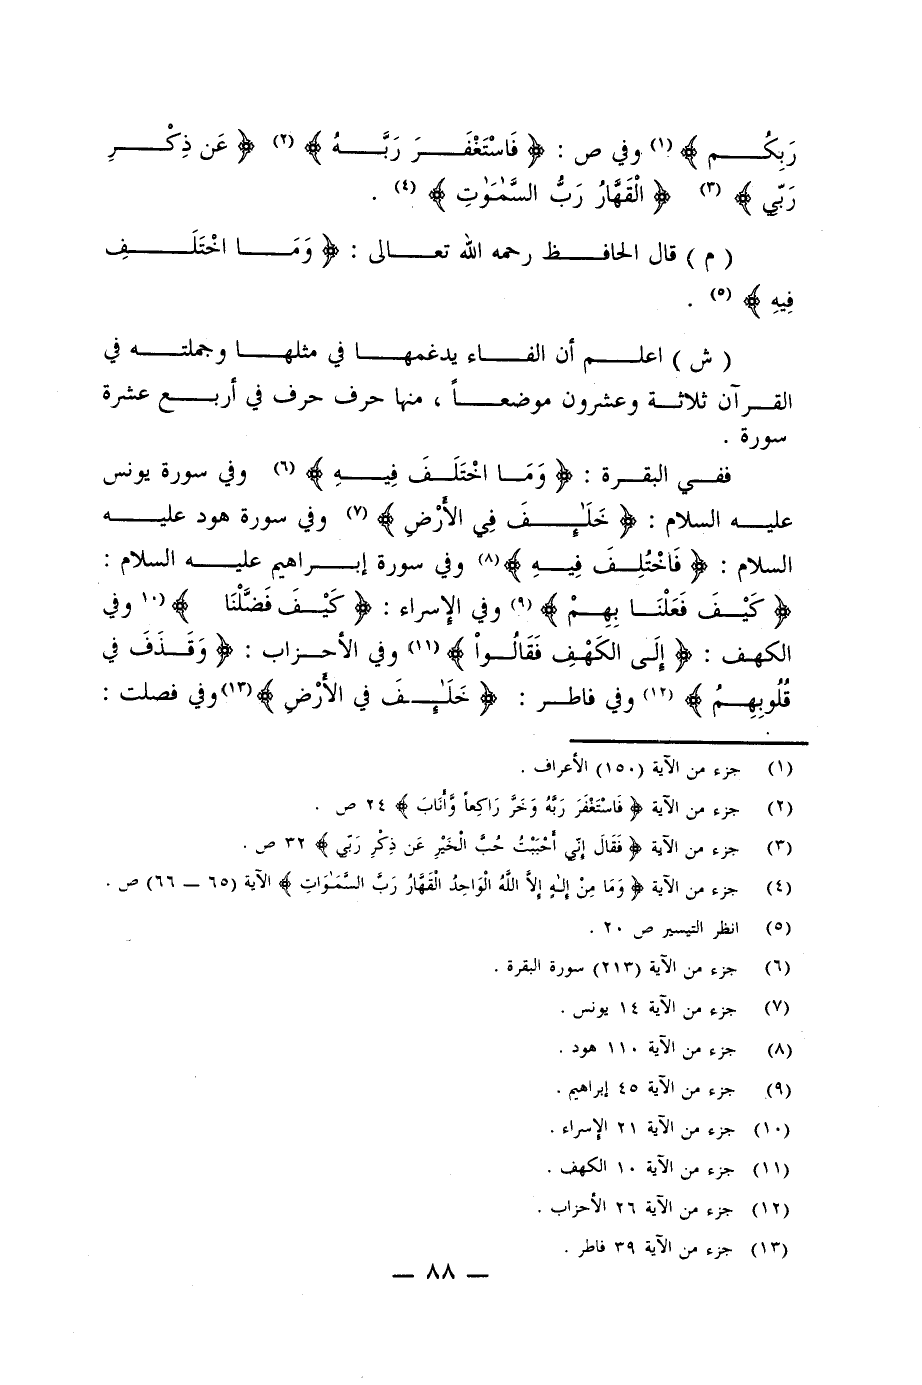 رَبِكُم ﴾ (١) وفي ص : ﴿ فَاسْتَغْفَرَ رَبَّهُ ﴾ (٢) ﴿ عَن ذِكْرِ
رَبّي ﴾ (٣) ﴿ الْقَهَّارُ رَبُّ السَّمٰوَٰتِ ﴾ (٤) .
( م ) قال الحافظ رحمه الله تعالى : ﴿ وَمَا اخْتَلَفِ
فِيهِ ﴾ (٥) .
( ش ) اعلم أن الفاء يدغمها في مثلها وجملته في
القرآن ثلاثة وعشرون موضعاً ، منها حرف حرف في أربع عشرة
سورة .
ففي البقرة : ﴿ وَمَا اخْتَلَفَ فِيهِ ﴾ (٦) وفي سورة يونس
عليه السلام : ﴿ خَلَٰٓئِفَ فِي الأَرْضِ ﴾ (٧) وفي سورة هود عليه
السلام : ﴿ فَاخْتُلِفَ فِيهِ ﴾ (٨) وفي سورة إبراهيم عليه السلام :
﴿ كَيْفَ فَعَلْنَا بِهِمْ ﴾ (٩) وفي الإسراء : ﴿ كَيْفَ فَضَّلْنَا ﴾ (١٠ وفي
الكهف : ﴿ إِلَى الكَهْفِ فَقَالُواْ ﴾ (١١) وفي الأحزاب : ﴿ وَقَذَفَ في
قُلُوبِهِمُ ﴾ (١٢) وفي فاطر : ﴿ خَلَٰٓئِفَ في الأَرْضِ ﴾ (١٣) وفي فصلت :
(١) جزء من الآية (١٥٠) الأعراف .
(٢) جزء من الآية ﴿ فَاسْتَغْفَرَ رَبَّهُ وَخَرَّ رَاكِعاً وَّأَنَابَ ﴾ ٢٤ ص .
(٣) جزء من الآية ﴿ فَقَالَ إِنّي أَحْبَبْتُ حُبَّ الْخَيْرِ عَن ذِكْرِ رَبّي ﴾ ٣٢ ص .
(٤) جزء من الآية ﴿ وَمَا مِنْ إِلٰهٍ إِلاَّ اللَّهُ الْوَاحِدُ الْقَهَّارُ رَبَّ السَّمٰوَاتِ ﴾ الآية (٦٥ – ٦٦) ص .
(٥) انظر التيسير ص ٢٠ .
(٦) جزء من الآية (٢١٣) سورة البقرة .
(٧) جزء من الآية ١٤ يونس .
(٨) جزء من الآية ١١٠ هود .
(٩) جزء من الآية ٤٥ إبراهيم .
(١٠) جزء من الآية ٢١ الإسراء .
(١١) جزء من الآية ١٠ الكهف .
(١٢) جزء من الآية ٢٦ الأحزاب .
(١٣) جزء من الآية ٣٩ فاطر .
— ٨٨ —